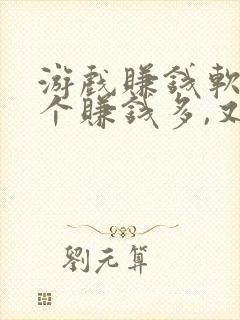 游戏賺錢軟
个賺錢多,又
劉元算